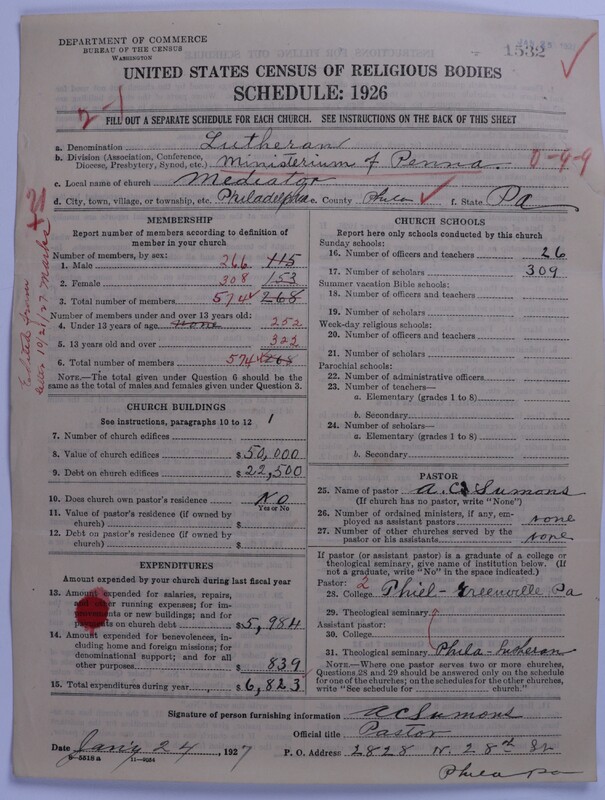 DEPARTMENT OF COMMERCE
BUREAU OF THE CENSUS
WASHINGTON
1532
UNITED STATES CENSUS OF RELIGIOUS BODIES
SCHEDULE: 1926
2-1
FILL OUT A SEPARATE SCHEDULE FOR EACH CHURCH. SEE INSTRUCTIONS ON THE BACK OF THIS SHEET
a. Denomination Lutheran
b. Division (Association, Conference, Diocese, Presbytery, Synod, etc.) Ministerium of Penna. 0-9-9
c. Local name of church Mediator
d. City, town, village, or township, etc. Philadelphia e. County Phila f. State Pa
MEMBERSHIP
Report number of members according to definition of member in your church
Number of members, by sex:
1. Male 266 115
2. Female 308 153
3. Total number of members 574 268
Number of members under and over 13 years old:
4. Under 13 years of age None 252
5. 13 years old and over 322
6. Total number of members 574 268
NOTE.—The total given under Question 6 should be the same as the total of males and females given under Question 3.
CHURCH BUILDINGS
See instructions, paragraphs 10 to 12
7. Number of church edifices 1
8. Value of church edifices $50,000
9. Debt on church edifices $22,500
10. Does church own pastor's residence No
Yes or No
11. Value of pastor's residence (if owned by church) $
12. Debt on pastor's residence (if owned by church) $
EXPENDITURES
Amount expended by your church during last fiscal year
13. Amount expended for salaries, repairs, and other running expenses; for improvements or new buildings; and for payments on church debt $5,984
14. Amount expended for benevolences, including home and foreign missions; for denominational support; and for all other purposes $ 839
15. Total expenditures during year $6,823
CHURCH SCHOOLS
Report here only schools conducted by this church
Sunday schools:
16. Number of officers and teachers 26
17. Number of scholars 309
Summer vacation Bible schools:
18. Number of officers and teachers
19. Number of scholars
Week-day religious schools:
20. Number of officers and teachers
21. Number of scholars
Parochial schools:
22. Number of administrative officers
23. Number of teachers—
a. Elementary (grades 1 to 8)
b. Secondary
24. Number of scholars—
a. Elementary (grades 1 to 8)
b. Secondary
PASTOR
25. Name of pastor A. C. Sumons
(If church has no pastor, write "None")
26. Number of ordained ministers, if any, employed as assistant pastors none
27. Number of other churches served by the pastor or his assistants none
If pastor (or assistant pastor) is a graduate of a college or theological seminary, give name of institution below. (If not a graduate, write "No" in the space indicated.)
Pastor: 2
28. College Thiel - Greenville Pa
29. Theological seminary
Assistant pastor:
30. College
31. Theological seminary Phila-Lutheran
NOTE.—Where one pastor serves two or more churches, Questions 28 and 29 should be answered only on the schedule for one of the churches; on the schedules for the other churches, write "See schedule for church."
Signature of person furnishing information A C Sumons
Official title Pastor
Date Jan'y 24, 1927 P. O. Address 2828 N. 28th St
Phila Pa
8—5518 a 11—9034